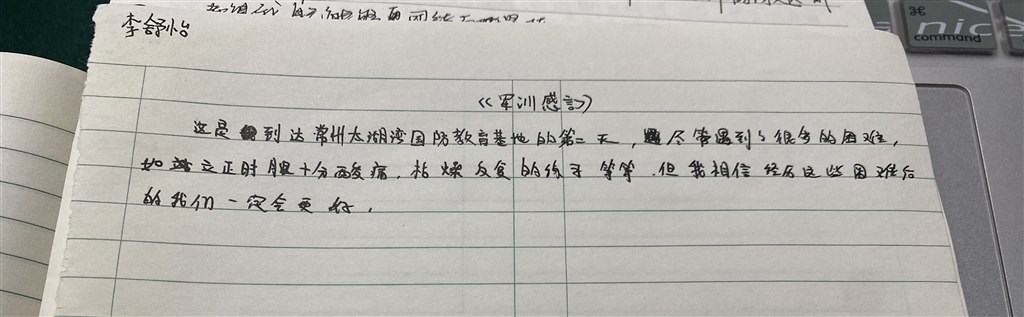 李舒怡
《军训感言》
这是到达常州太湖湾国防教育基地的第二天，尽管遇到了很多的困难，
如立正时腿十分酸痛，枯燥反复的练习等等。但我相信经历这些困难后
的我们一定会更好。
⌘
command
nice